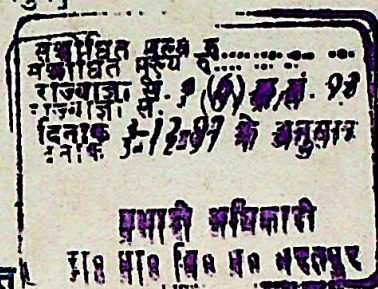 संशोधित मूल्य रु..................
राज्याज्ञा सं. 1 (6) क.सं. 93
दिनांक 3-12-97 के अनुसार
प्रभारी अधिकारी
रा० भा० वि० भ० भरतपुर